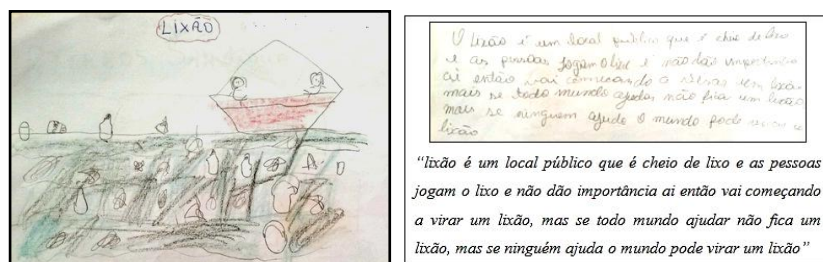 LIXÃO
O lixão é um local publico que é cheio de lixo
e as pessoas jogam o lixo e não dão importância
ai então vai começando a virar um lixão
mais se todo mundo ajudar não fica um lixão
mais se ninguem ajuda o mundo pode virar um
lixão
“lixão é um local público que é cheio de lixo e as pessoas
jogam o lixo e não dão importância ai então vai começando
a virar um lixão, mas se todo mundo ajudar não fica um
lixão, mas se ninguém ajuda o mundo pode virar um lixão”